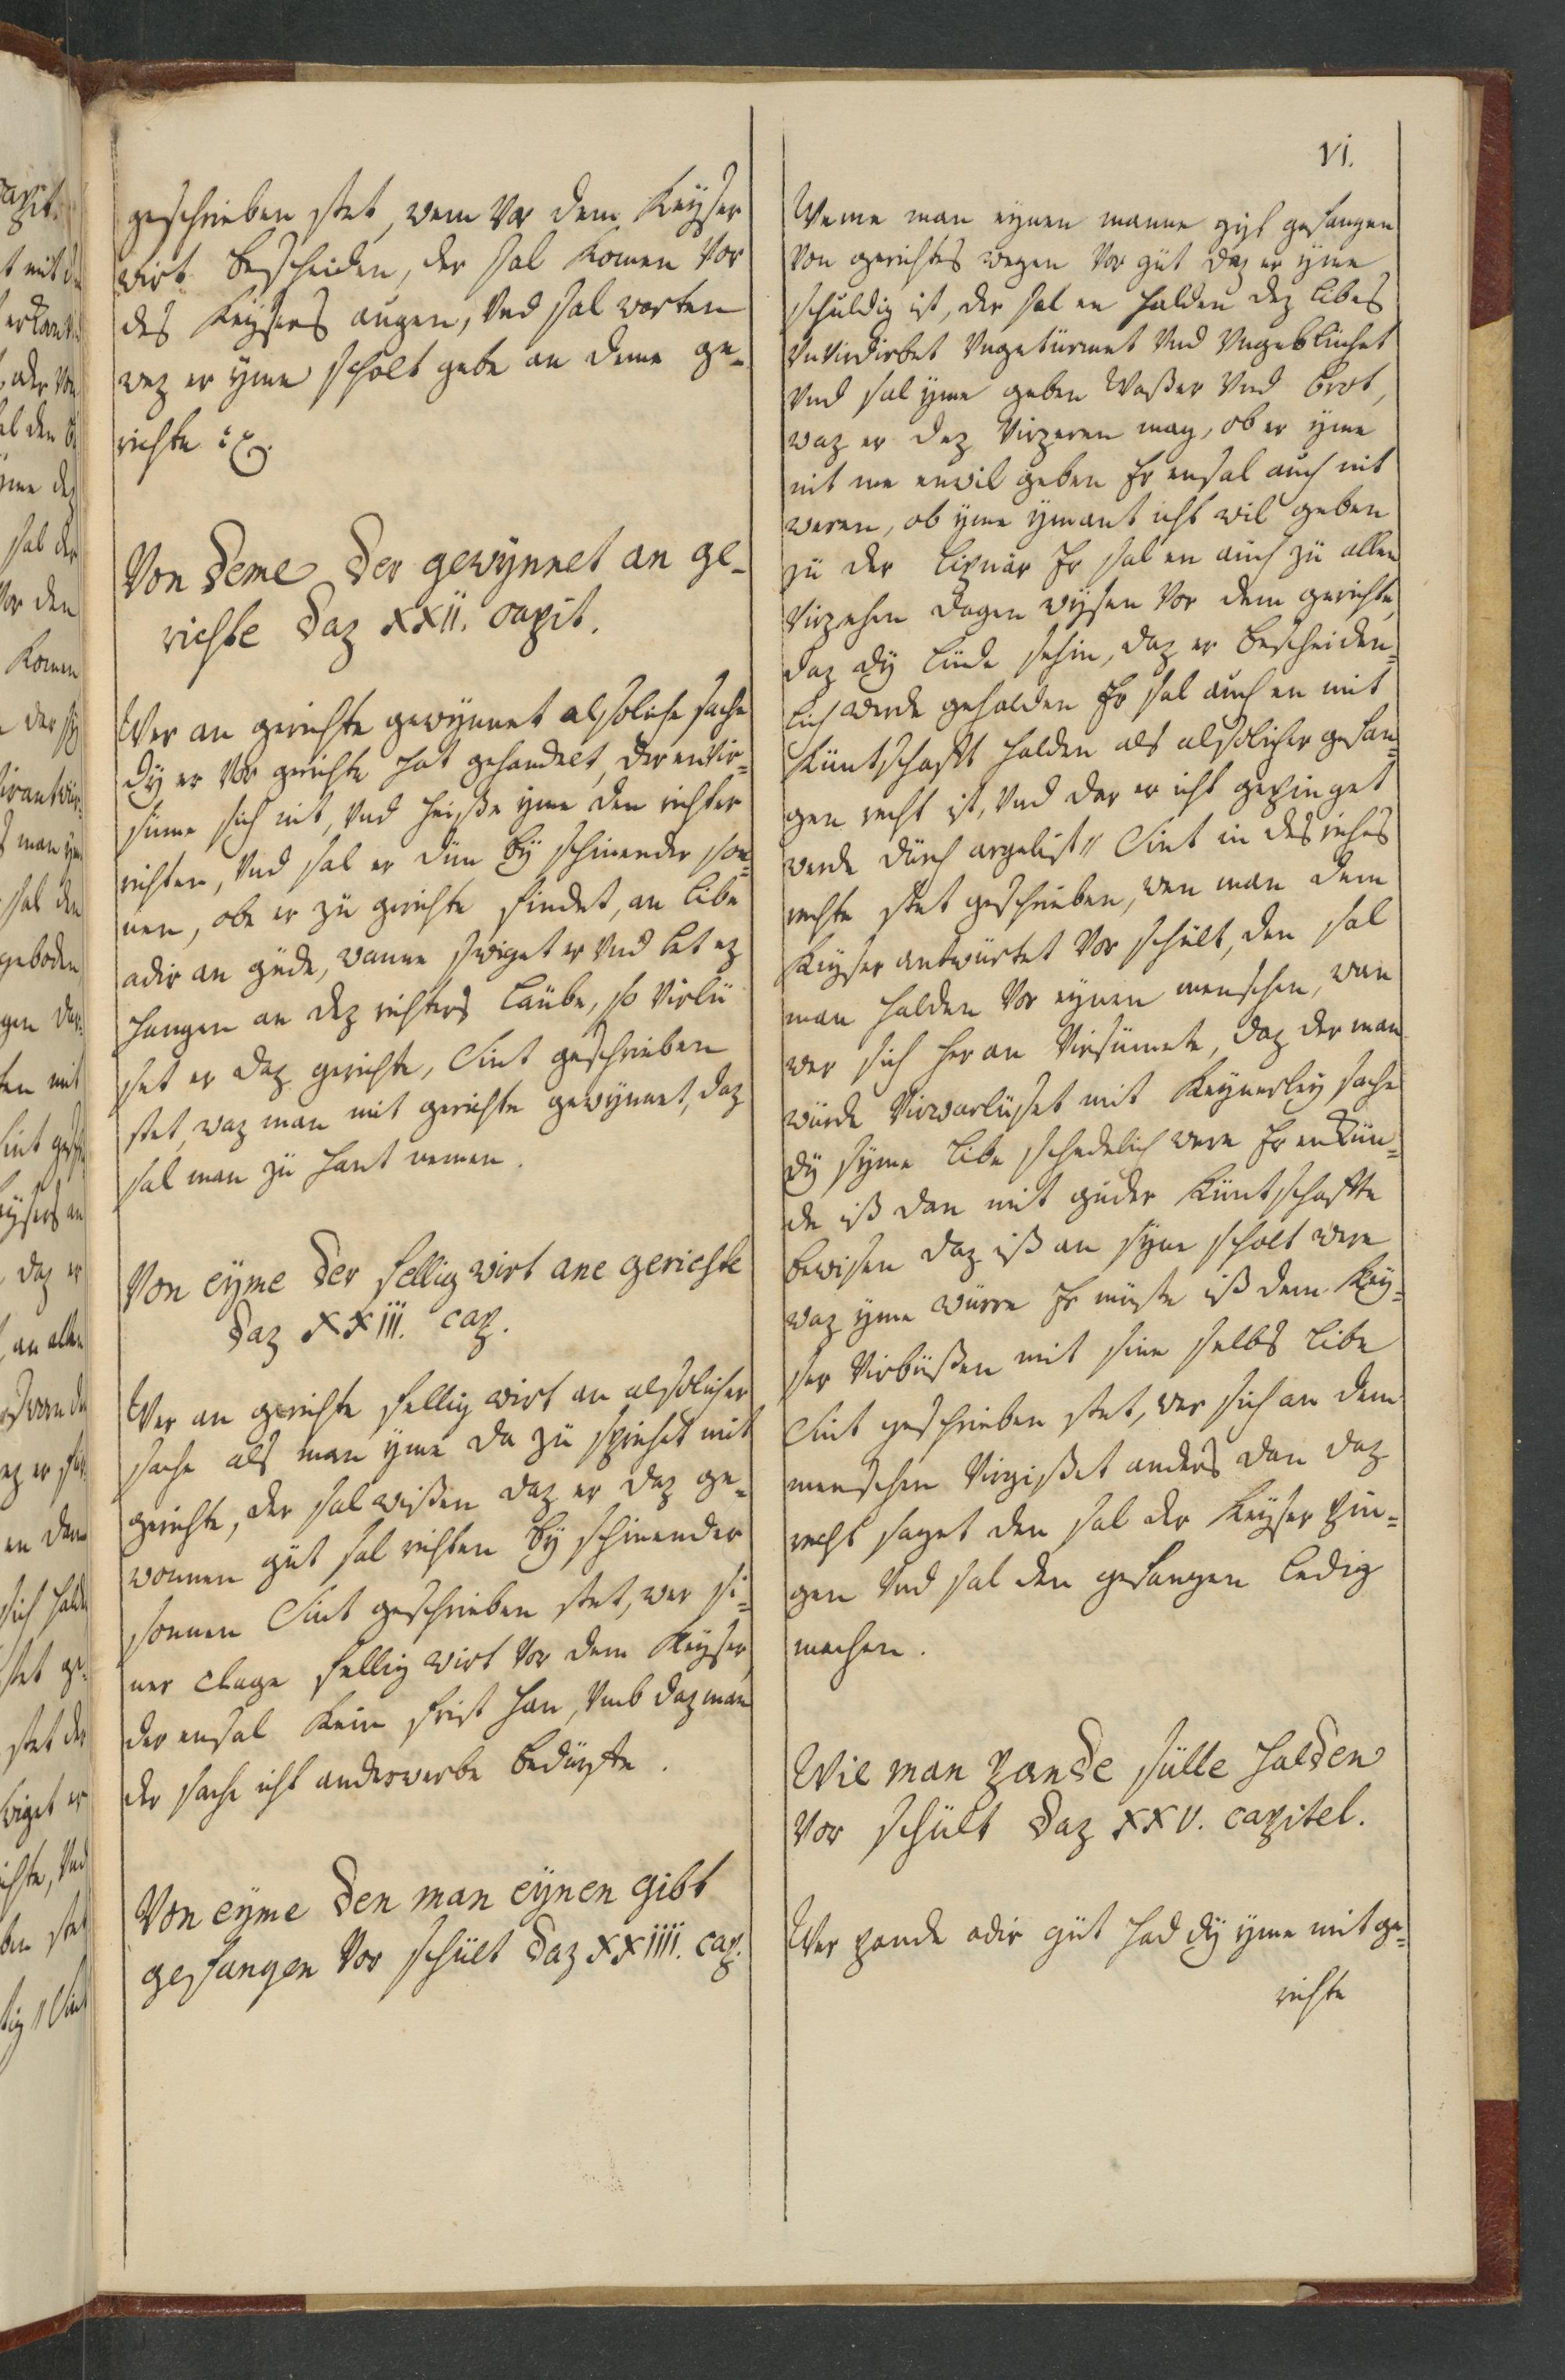 geschrieben stet, wem Vor dem Keyser
wirt bescheiden, der sal komen Vor
des Keysers augen, Vnd sal worten
waz er yme scholt gebe an deme ge-
richte :/:
Von deme der gewynnet an ge-
richte daz XXII. capit.
Wer an gerichte gewynnet alsoliche sache
dy er Vor gerichte hat gehandelt, der en Vir-
sume sich nit, Vnd heisse yme den richter
richten, Vnd sal er dun by schinender son-
nen, obe er zu gerichte findet, an libe
adir an gude, wanne swiget er Vnd let ez
hangen an dez richters laube, so Virlu
set er daz gerichte, Sint geschrieben
stet, waz man mit gerichte gewynnet, daz
sal man zu hant nemen.
Von eyme der fellig wirt ane gerichte
daz XXIII. cap.
Wer an gerichte fellig wirt an alsolicher
sache als man yme da zu sprichet mit
gerichte, der sal wißen daz er daz ge-
wonnen gut sal richten by schinender
sonnen Sint geschrieben stet, wer si-
ner clage fellig wirt Vor dem Keyser,
der ensal kein frist han, Vmb daz man
der sache icht anderwerbe bedurfte.
Von eyme den man eynen gibt
gefangen Vor schult daz XXIIII. cap.
VI.
Weme man eynen manne gift gefangen
Von gerichtes wegen Vor gut daz er yme
schuldig ist, der sal en halden dez libes
Vnvirdirbet Vngeturmet Vnd Vngebluchet
Vnd sal yme geben Waßer Vnd brot,
waz er dez Virzeren mag, ob er yme
nit me enwil geben Er ensal auch nit
weren, ob yme ymant icht wil geben
zu der lipnar Er sal en auch zu allen
Virzehen dagen wysen Vor dem gerichte,
daz dy lude sehin, daz er bescheiden-
lich werde gehalden Er sal auch en mit
kuntschafft halden als alsolicher gefan-
gen recht ist, Vnd dar er icht gepinget
werde durch argelist // Sint in des riches
rechte stet geschrieben, wen man dem
Keyser antwurtet Vor schult, den sal
man halden Vor eynen menschen, wan
wer sich her an Virsumete, daz der man
wurde Virwarluset mit keynerley sache
dy syme libe schedelich were Er enkun-
de iß dan mit guder kuntschaffte
bewisen daz iß an syne scholt were
waz yme wurre Er muste iß dem Key-
ser Virbußen mit sine selbs libe
Sint geschrieben stet, wer sich an dem
menschen Virgißet anders dan daz
recht saget den sal der Keyser pin-
gen Vnd sal den gefangen ledig
machen.
Wie man pande sulle halden
Vor schult daz XXV. capitel.
Wer pande adir gut had dy yme mit ge-
richte